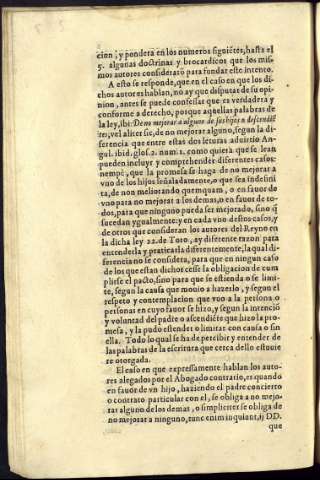 cien; y pondera en los numeros siguiẽtes, hasta el
5. algunas doctrinas y brocardicos que los mis-
mos autores considerarõ para fundar este intento.
A esto se responde, que en el caso en que los di-
chos autores hablan, no ay que disputar de su opi-
nion, antes se puede confessar que es verdadera y
conforme a derecho, porque aquellas palabras de
la ley, ibi: De no mejorar a alguno de sus hijos o descendiẽ
tes; vel aliter sic, de no mejorar alguno, segun la di-
ferencia que entre estas dos leturas aduirtio An-
gul. ibid. glos. 2. num. 1. como quiera que se lean
pueden incluyr y comprehender diferentes casos:
nempè, que la promesa se haga de no mejorar a
vno de los hijos señaladamente, o que sea indefini-
ta, de non meliorando quemquam, o en fauor de
vno para no mejorar a los demas, o en fauor de to-
dos, para que ninguno pueda ser mejorado, sino q̃
sucedan ygualmente: y en cada vno destos casos, y
de otros que consideran los autores del Reyno en
la dicha ley 22. de Toro, ay diferente razon para
entenderla y praticarla diferentemente, la qual di-
ferencia no se considera, para que en ningun caso
de los que estan dichos cesse la obligacion de cum
plirse el pacto, sino para que se estienda o se limi-
te, segun la causa que mouio a hazerlo, y segun el
respeto y contemplacion que vuo a la persona o
personas en cuyo fauor se hizo, y segun la intenciõ
y voluntad del padre o ascendiẽte que hizo la pro-
mesa, y la pudo estender o limitar con causa o sin
ella. Todo lo qual se ha de percibir y entender de
las palabras de la escritura que cerca dello estouie
re otorgada.
El caso en que expressamente hablan los auto-
res alegados por el Abogado contrario, es quando
en fauor de vn hijo, haziendo el padre concierto
o contrato particular con el, se obliga a no mejo-
rar alguno de los demas, o simpliciter se obliga de
no mejorar a ninguno, tunc enim inquiunt, ij DD.
que